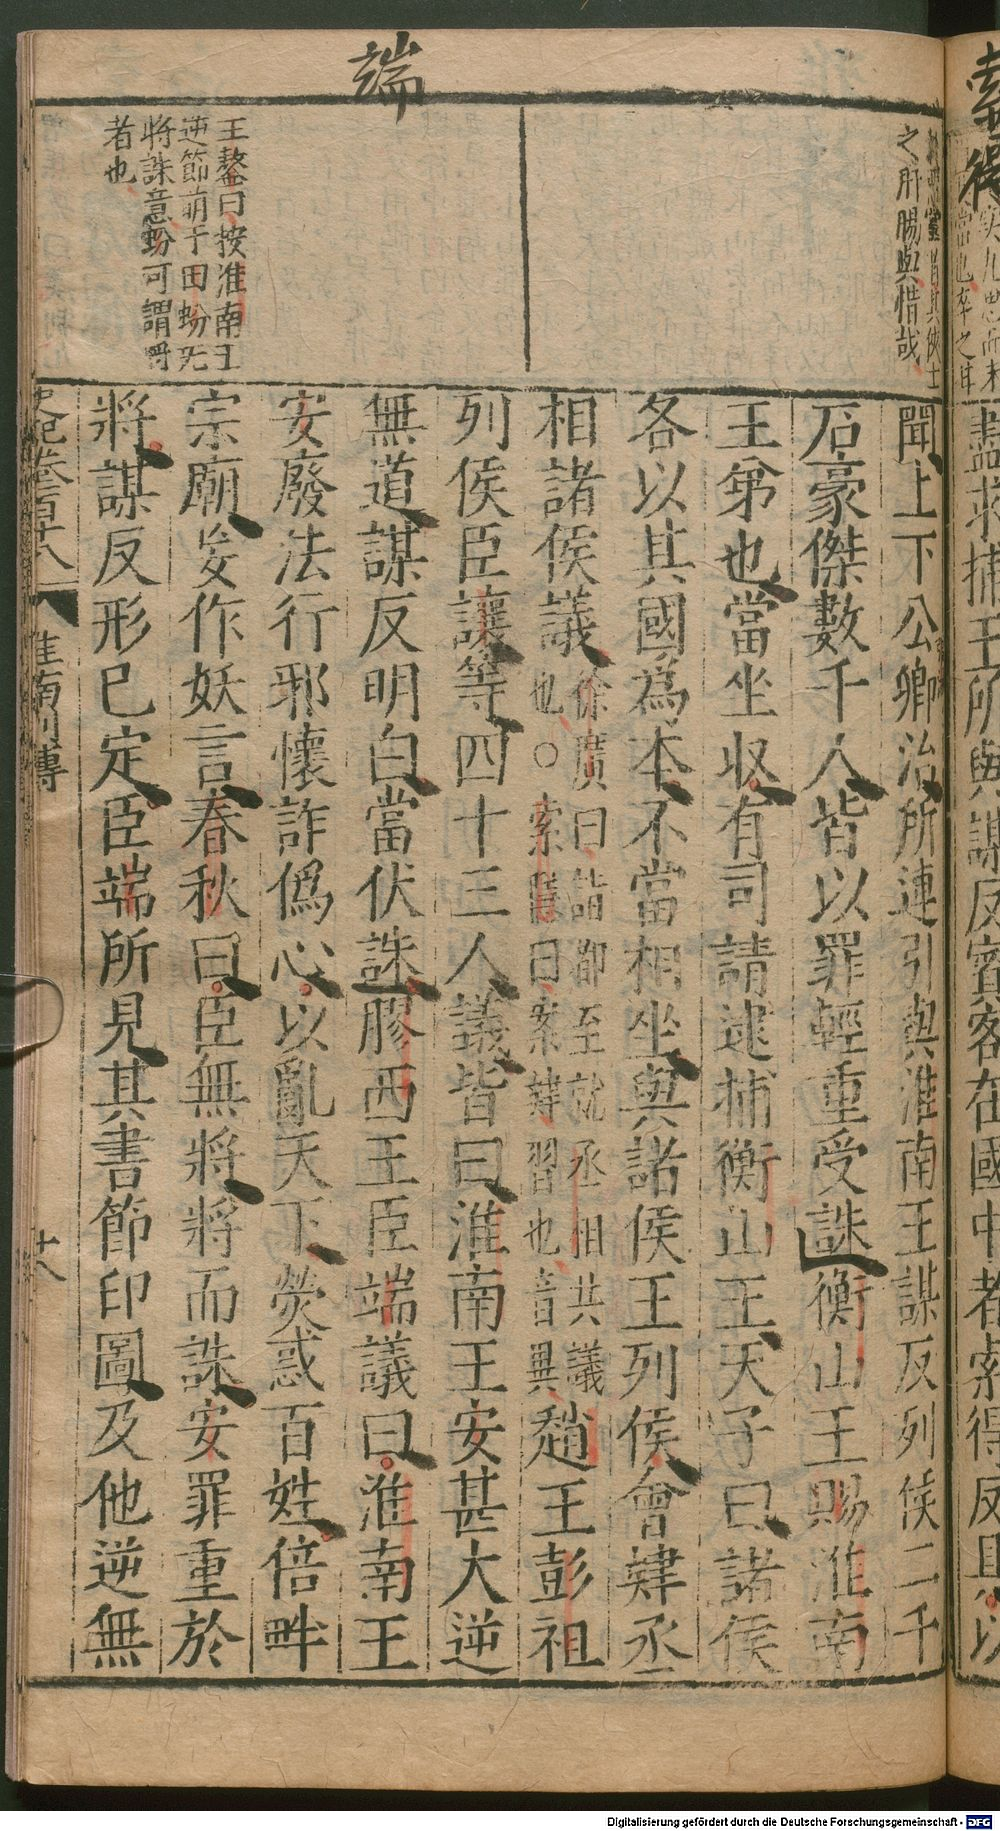 端
之肝腸與惜哉
王鏊曰按淮南王
逆節萌于田蚡死
將誅意蚡可謂
者也
聞上下公卿治所連引與淮南王謀反列侯二千
石豪傑數千人皆以罪輕重受誅衡山王賜淮南
王弟也當坐收有司請逮捕衡山王天子曰諸侯
各以其國為本不當相坐與諸侯王列侯會肄丞
相諸侯議
徐廣曰詣都至就丞相共議
也○索隱曰案肄習也音異
趙王彭祖
列侯臣讓等四十三人議皆曰淮南王安甚大逆
無道謀反明白當伏誅膠西王臣端議曰淮南王
安廢法行邪懷詐僞心以亂天下熒惑百姓倍畔
宗廟妄作妖言春秋曰臣無將將而誅安罪重於
將謀反形已定臣端所見其書節印圖及他逆無
史記卷百十八
淮南列傳
十八
索得
盡求捕王所與謀反賓客在國中者索得反具以
Digitalisierung gefördert durch die Deutsche Forschungsgemeinschaft - DFG